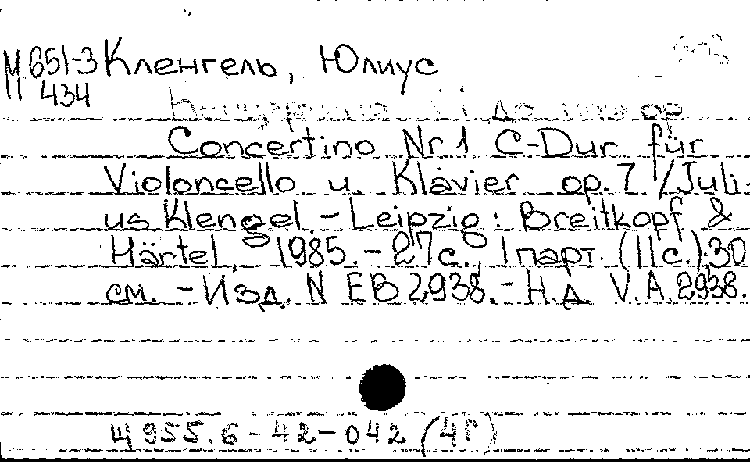 М 651-3 Кленгель, Юлиус
434
до мажор
Concertino Nr. 1 C-Dur für
Violoncello u. Klavier op. 7 / Juli-
us Klengel. – Leipzig: Breitkopf &
Härtel, 1985. – 27 с., 1 парт. (11 с.); 30
см. – Изд. N EB 2938. – Н.д. V.A. 2938.
4955.6-42-042 (4Г)